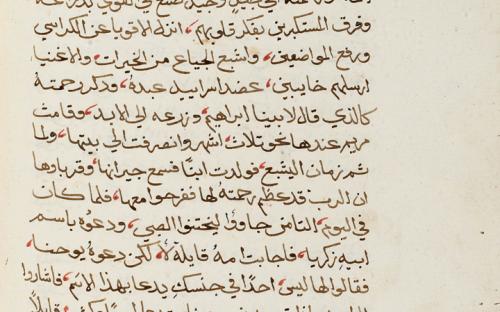 وفرق المستكبرين بفكر قلوبهم، انزل الاقويا عن الكراسي
ورفع المواضعين، واشبع الجياع من الخيرات والاغنيا
ارسلهم خايبين، عضد اسراييل عبده، وذكر رحمته
كالذي قال لابينا ابراهيم، وزرعه الي الابد، وقامت
مريم عندها نحو ثلاث اشهر وانصرفت الي بيتها، ولما
تم زمان اليشبع فولدت ابنًا فسمع جيرانها، وقرباوها
ان الرب قد عظم رحمته لها ففرحوا معها، فلما كان
في اليوم الثامن جاووا ليختنوا الصبي، ودعوه باسم
ابيه زكريا، فاجابت امه قايلة لا، لكن دعوه يوحنا،
فقالوا لها ليس احدًا في جنسك يدعا بهذا الاسم، فاشاروا